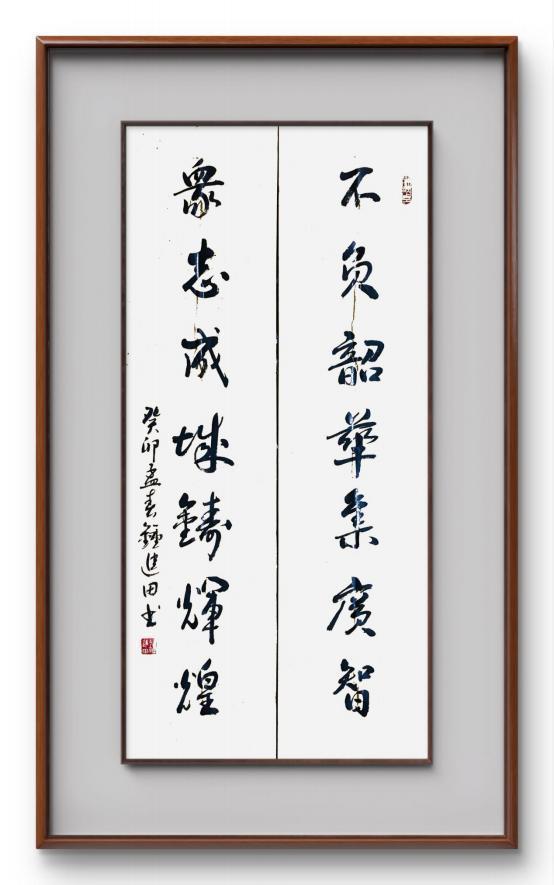 不負韶華集廣智
眾志成城鑄輝煌
癸卯孟春鍾進田书